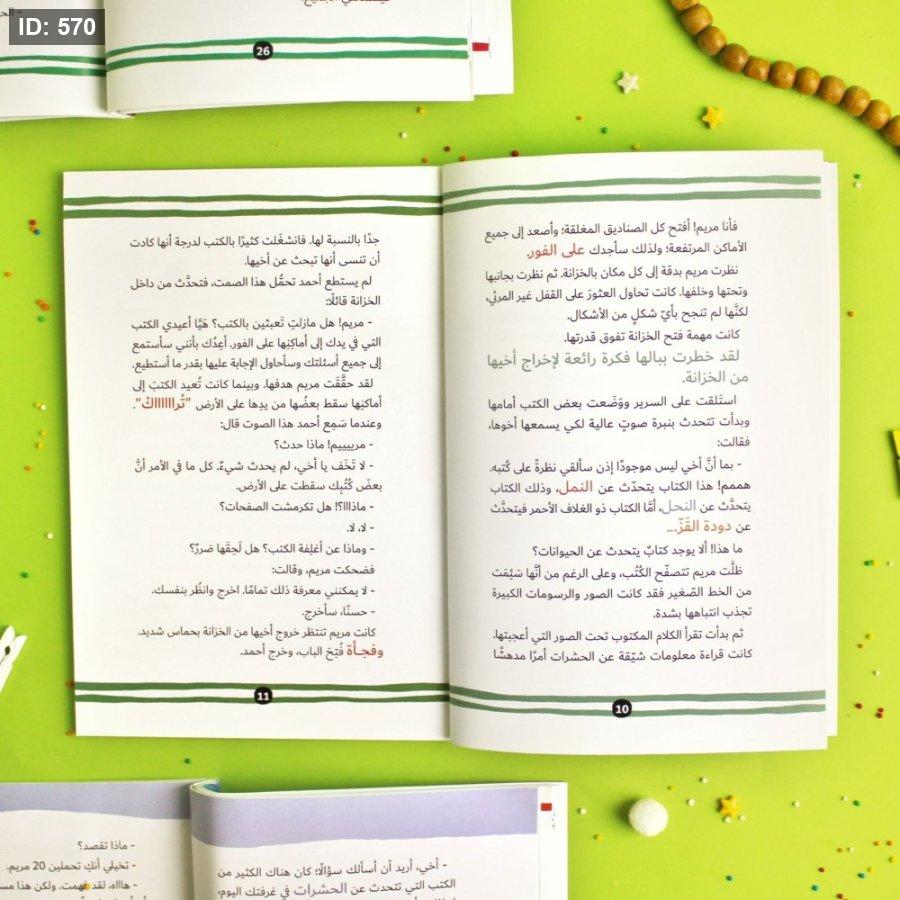 ID: 570
26
فأنا مريم! أفتح كل الصناديق المغلقة؛ وأصعد إلى جميع
الأماكن المرتفعة؛ ولذلك سأجدك على الفور.
نظرت مريم بدقة إلى كل مكان بالخزانة. ثم نظرت بجانبها
وتحتها وخلفها. كانت تحاول العثورَ على القفل غير المرئي،
لكنَّها لم تنجح بأيّ شكلٍ من الأشكال.
كانت مهمة فتح الخزانة تفوق قدرتها.
لقد خطرت ببالها فكرة رائعة لإخراج أخيها
من الخزانة.
استَلقت على السرير ووَضَعت بعض الكتب أمامها
وبدأت تتحدث بنبرة صوتٍ عالية لكي يسمعها أخوها،
فقالت:
- بما أنَّ أخي ليس موجودًا إذن سألقي نظرةً على كُتبه.
هممم! هذا الكتاب يتحدّث عن النمل، وذلك الكتاب
يتحدَّث عن النحل، أمَّا الكتاب ذو الغلاف الأحمر فيتحدَّث
عن دودة القَزّ...
ما هذا! ألا يوجد كتابٌ يتحدث عن الحيوانات؟
ظلَّت مريم تتصفّح الكُتُب، وعلى الرغم من أنَّها سَئِمَت
من الخط الصّغير فقد كانت الصور والرسومات الكبيرة
تجذب انتباهها بشدة.
ثم بدأت تقرأ الكلام المكتوب تحت الصور التي أعجبتها.
كانت قراءة معلومات شيّقة عن الحشرات أمرًا مدهشًا
10
جدًا بالنسبة لها. فانشغَلت كثيرًا بالكتب لدرجة أنها كادت
أن تنسى أنها تبحث عن أخيها.
لم يستطع أحمد تحمُّل هذا الصمت، فتحدَّث من داخل
الخزانة قائلًا:
- مريم! هل مازلتِ تَعبثين بالكتب؟ هَيَّا أعيدي الكتب
التي في يدك إلى أماكِنِها على الفور. أعِدُك بأنني سأستمع
إلى جميع أسئلتك وسأحاول الإجابة عليها بقدر ما أستطيع.
لقد حقَّقَت مريم هدفها. وبينما كانت تُعيد الكتبَ إلى
أماكنِها سقط بعضُها من يدِها على الأرض "تُراااااكْ".
وعندما سَمِع أحمد هذا الصوت قال:
- مرييييم! ماذا حدث؟
- لا تَخَف يا أخي، لم يحدث شيءٌ. كل ما في الأمر أنَّ
بعضَ كُتُبِك سقطت على الأرض.
- ماذااا؟! هل تكرمشت الصفحات؟
- لا، لا.
- وماذا عن أغلِفة الكتب؟ هل لَحِقَها ضررٌ؟
فضحكت مريم، وقالت:
- لا يمكنني معرفة ذلك تمامًا. اخرج وانظُر بنفسك.
- حسنًا، سأخرج.
كانت مريم تنتظر خروج أخيها من الخزانة بحماس شديد.
وفجـأة فُتِحَ الباب، وخرج أحمد.
11
- أخي، أريد أن أسألك سؤالًا؛ كان هناك الكثير من
الكتب التي تتحدث عن الحشرات في غرفتك اليوم،
- ماذا تقصد؟
- تخيلي أنكِ تحملين 20 مريم.
- هاااه، لقد فهمت. ولكن هذا